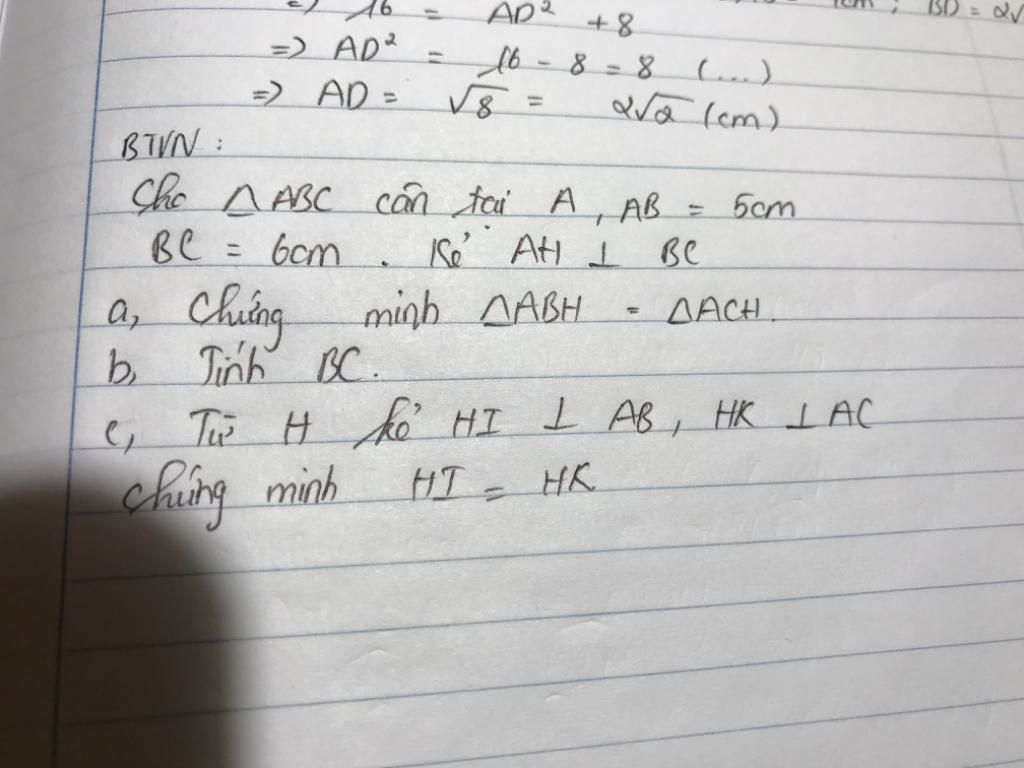 => 16 = AD² + 8
=> AD² = 16 - 8 = 8 (...)
=> AD = √8 = 2√2 (cm)
BTVN :
Cho △ABC cân tại A, AB = 5cm
BC = 6cm. Kẻ AH ⊥ BC
a, Chứng minh △ABH = △ACH.
b, Tính BC.
c, Từ H kẻ HI ⊥ AB, HK ⊥ AC
chứng minh HI = HK